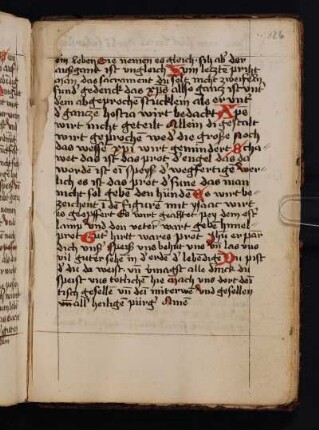 126
em leben Sie nemen es gleich sich ab der
ausganck ist ungleich Zum letzte pricht
man das sacrament du solt nicht zweifeln
sund gedenck das xpo also gancz ist unt
dem abgeproche stucklein als er unt
d' gancze hostia wirt bedackt Xps
wirt nicht geteilt Allein die gestalt
wirt gproche wed' die grosse noch
das wesse xpi wirt gemindert Scha
wet das ist das prot d' engel das da
worden ist ein speiss d' wegfertige wer
lich es ist das prot d' kine das man
nicht sol gebe den hunde Es wirt be
zeichent i de figure mit ysaac wirt
es geopffert Es wirt geachtet pey dem ost
lamp und den veter wart gebe himel
prot Gut hirt wares prot Jhu er par
dich uns speiss uns behut uns un las uns
vil guter sehe in d' erde d' lebendige Du pist
d' du da weist un vmagst alle dinck du
speist uns totliche hie mach uns dort dei
tisch geselle un dei miterwe und gesellen
un all' heilige purg' Ame